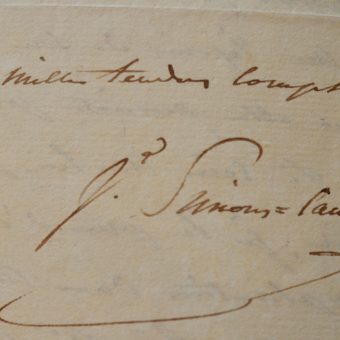 mille tendres Compl
J. Simons=Can